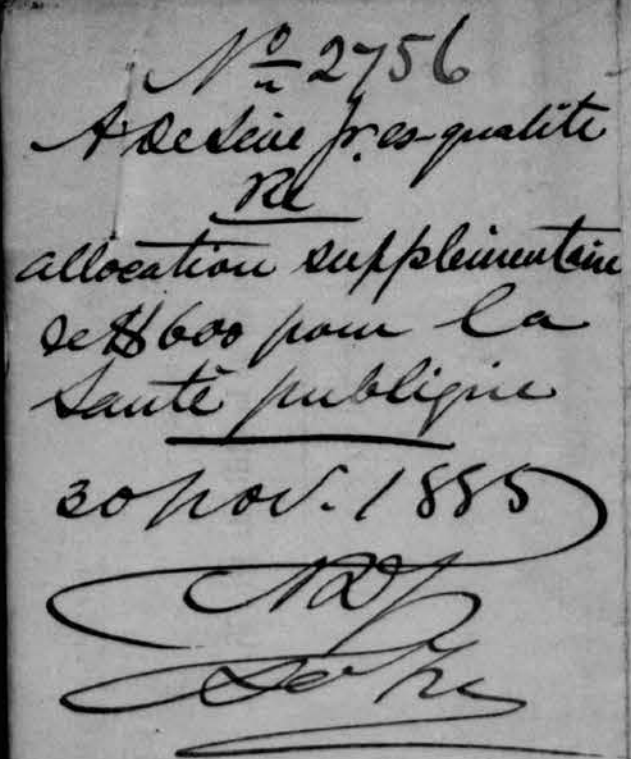 No 2756
A DeLéry Jr. es-qualité
Re
allocation supplémentaire
de $600 pour la
Santé publique
30 nov. 1885